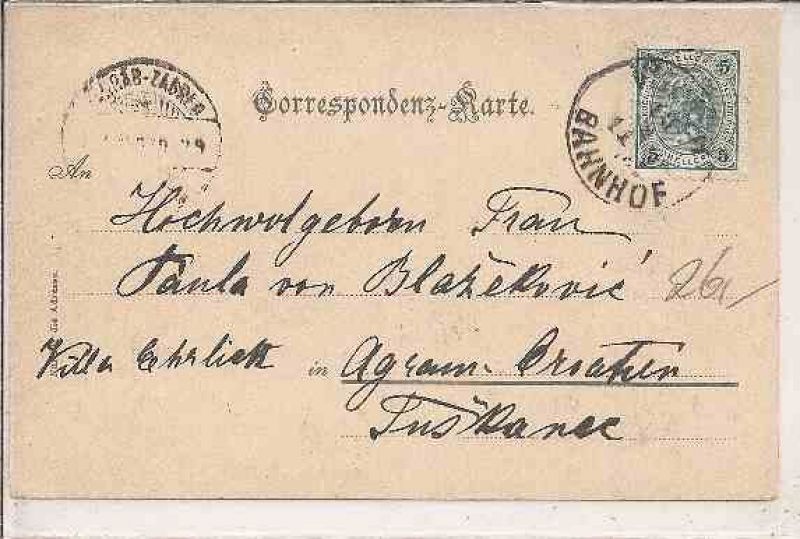 Correspondenz-Karte.
5 HELLER 5
BAHNHOF
An
Hochwolgeborn Frau
Paula von Blažeković
Villa Ehrlich in Agram - Croatien
Tuškanec